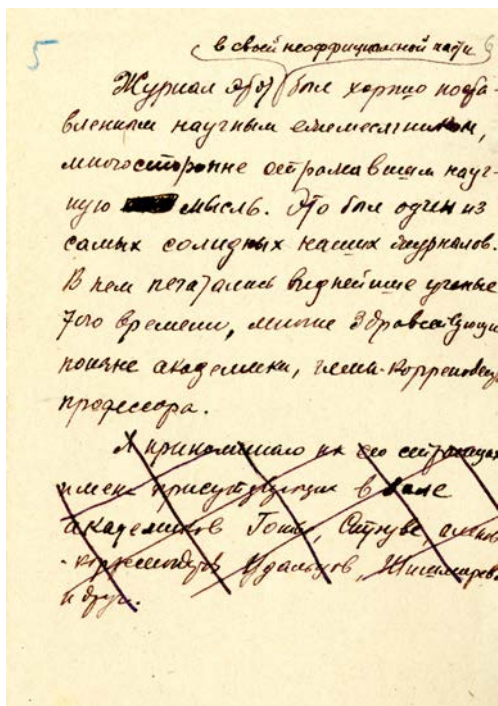 5
в своей неоффициальной части
Журнал этот был хорошо постав-
вленным научным ежемесячником,
многосторонне отражавшим науч-
ную мысль. Это был один из
самых солидных наших журналов.
В нем печатались виднейшие ученые
того времени, многие здравствующие
поныне академики, члены-корреспонд
профессора.
Я припоминаю на его страницах
имена присутствующих в зале
академиков Готье, Струве, членов
-корреспондентов Удальцов, Шишмарева
и друг.